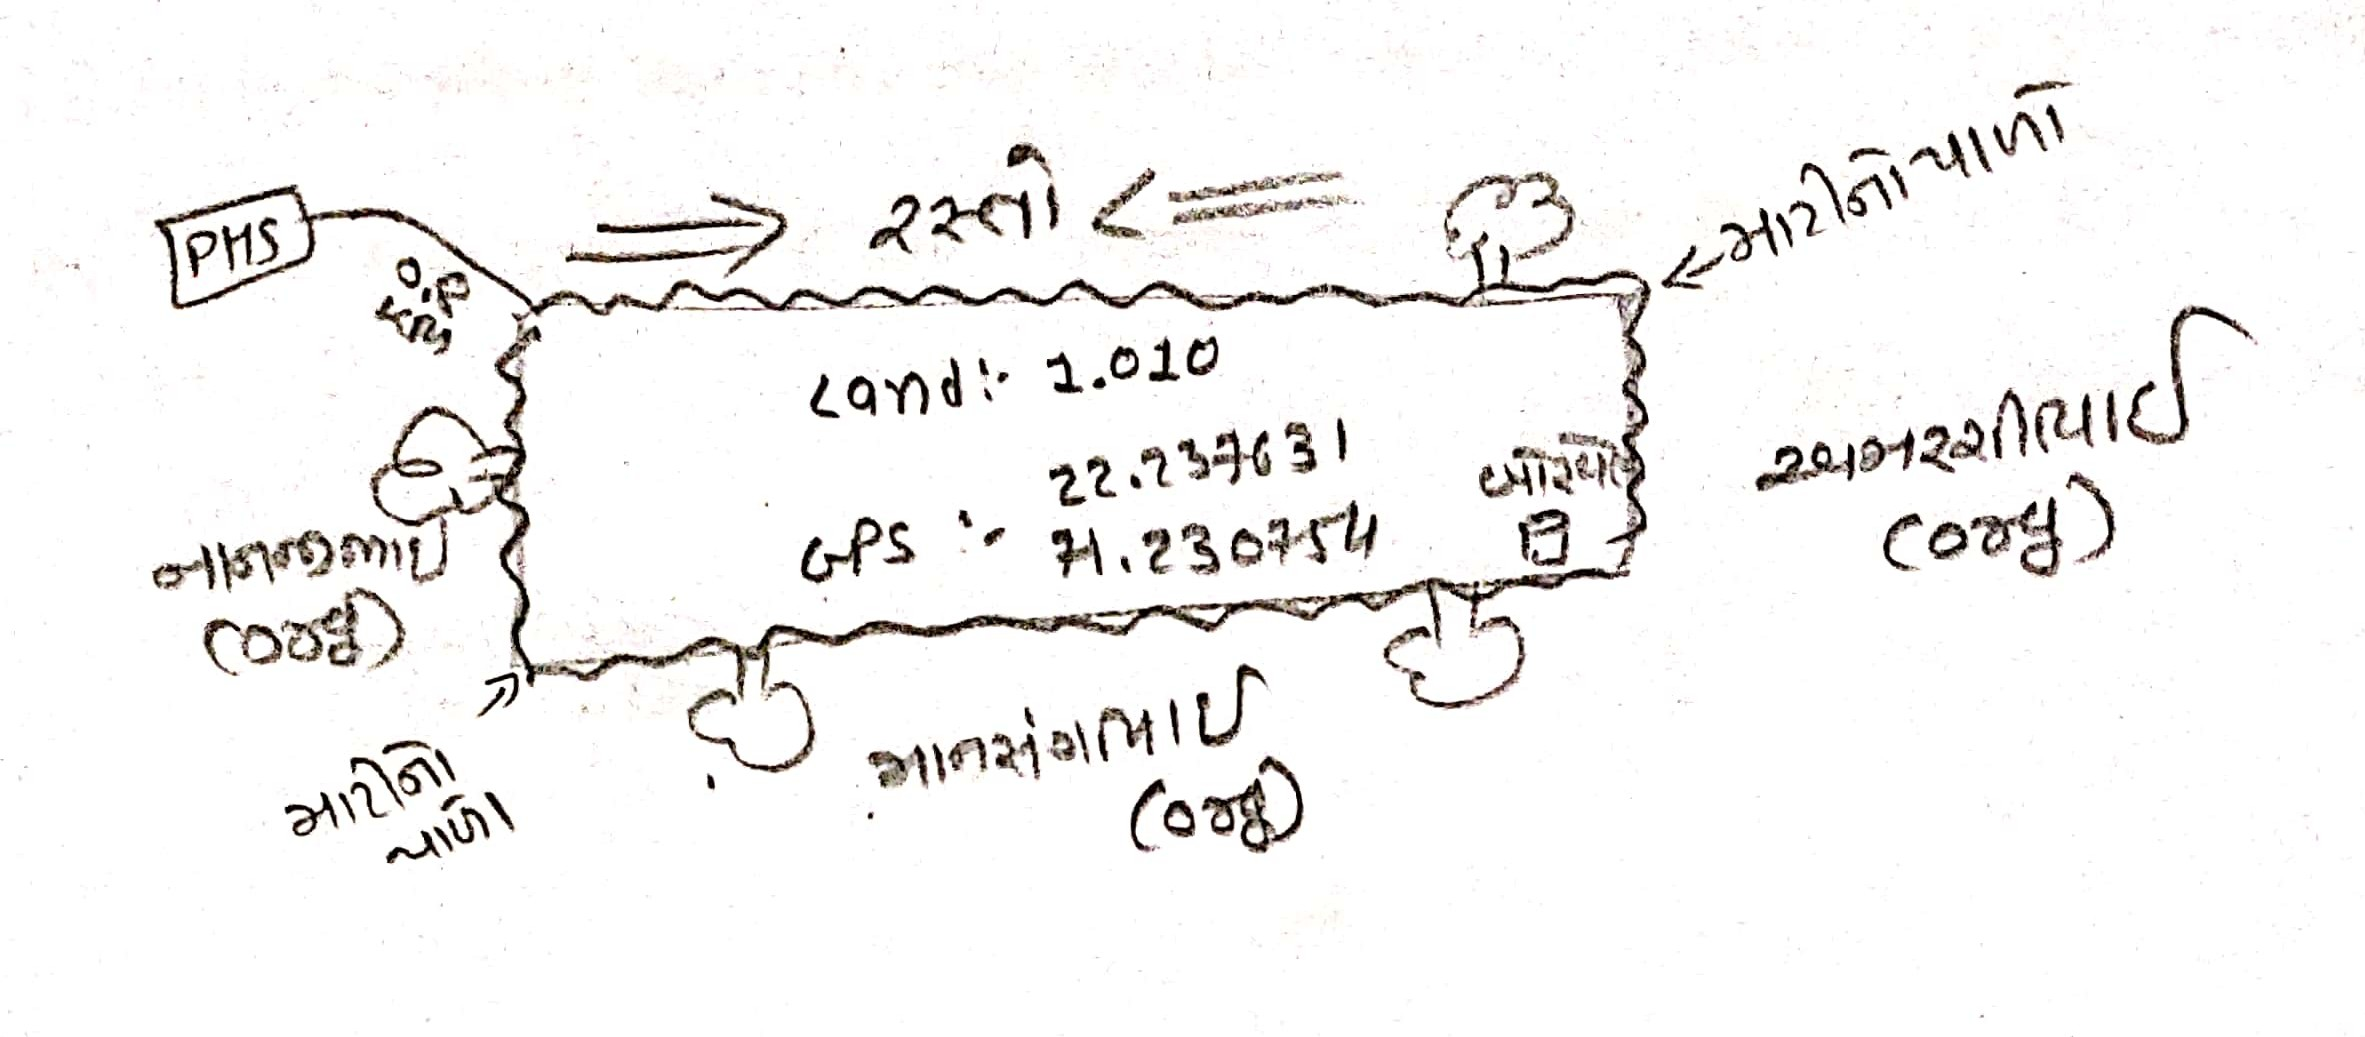 PHS
રસ્તો
માટીનો પાળો
0.8
કિમી
Land:- 1.010
22.237631
GPS :- 71.230754
બોરવેલ
(બાજુ)
(બાજુ)
માનસંગભાઈ
(બાજુ)
માટીનો
પાળો